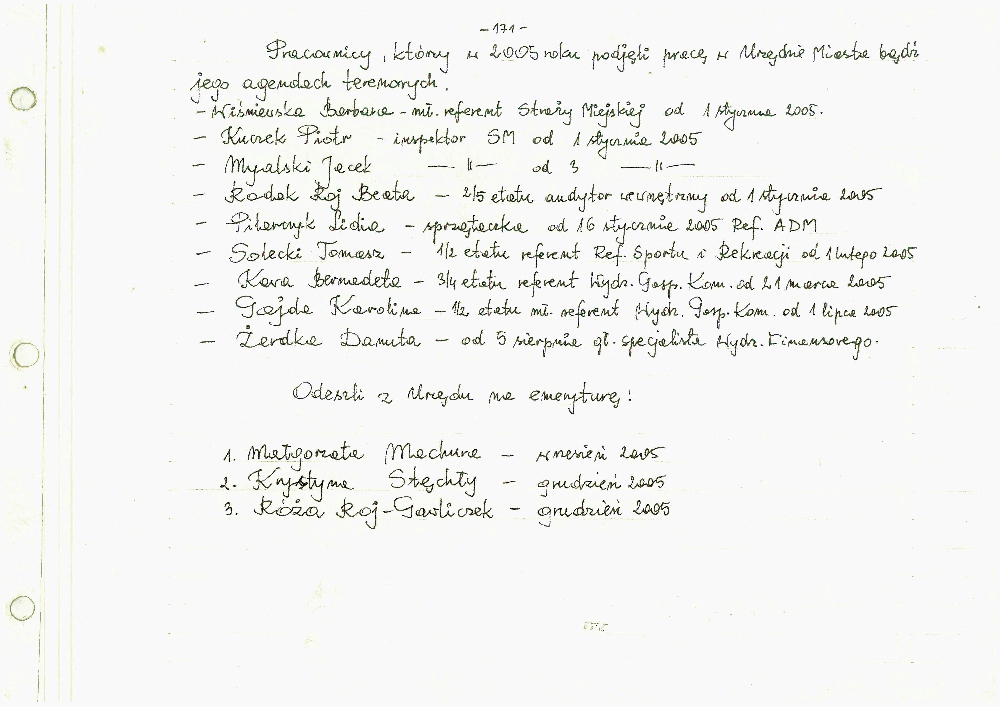 - 171 -
Pracownicy, którzy w 2005 roku podjęli pracę w Urzędzie Miasta bądź
jego agendach terenowych.
- Wiśniewska Barbara - mł. referent Straży Miejskiej od 1 stycznia 2005.
- Kuczek Piotr - inspektor SM od 1 stycznia 2005
- Myalski Jacek —"— od 3 —"—
- Rodak Roj Beata - 2/5 etatu audytor wewnętrzny od 1 stycznia 2005
- Pilarczyk Lidia - sprzątaczka od 16 stycznia 2005 Ref. ADM
- Solecki Tomasz - 1/2 etatu referent Ref. Sportu i Rekreacji od 1 lutego 2005
- Kawa Bernadeta - 3/4 etatu referent Wydz. Gosp. Kom. od 21 marca 2005
- Gajda Karolina - 1/2 etatu mł. referent Wydz. Gosp. Kom. od 1 lipca 2005
- Żerdka Danuta - od 5 sierpnia gł. specjalista Wydz. Finansowego.
Odeszli z Urzędu na emeryturę!
1. Małgorzata Machura - wrzesień 2005
2. Krystyna Stęchły - grudzień 2005
3. Róża Roj-Gawliczek - grudzień 2005